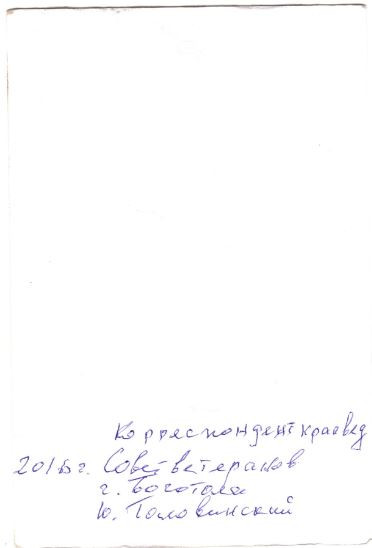 Корреспондент краевед
г. Совет ветеранов
г. Боготола
Ю. Головинский